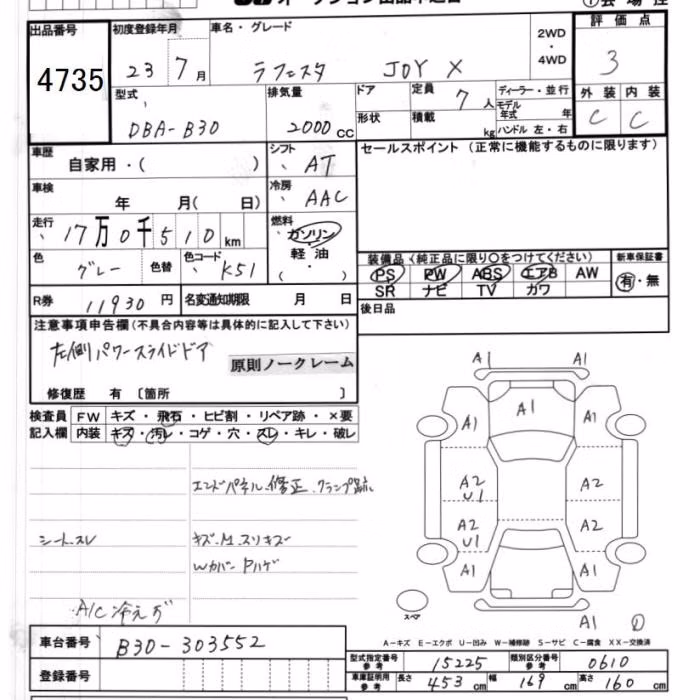 出品番号 初度登録年月 車名・グレード 2WD・4WD 評価点
4735 23年7月 ラフェスタ JOY X 3
型式 排気量 ドア 定員 7人 ディーラー・並行 外装 内装
DBA-B30 2000cc 形状 積載 kg モデル年式 年 ハンドル 左・右 C C
車歴 自家用・( ) シフト AT セールスポイント(正常に機能するものに限ります)
車検 年 月( 日) 冷房 AAC
走行 17万0千510km 燃料 ガソリン 軽油 ( ・ )
色 グレー 色替 色コード K51 装備品(純正品に限り○をつけてください) 新車保証書
PS PW ABS エアB AW 有・無
SR ナビ TV カワ
R券 11930円 名変通知期限 月 日 後日品
注意事項申告欄(不具合内容等は具体的に記入して下さい)
左側パワースライドドア
原則ノークレーム
修復歴 有〔箇所 〕
検査員 FW キズ・飛石・ヒビ割・リペア跡・×要
記入欄 内装 キズ・汚レ・コゲ・穴・スレ・キレ・破レ
A1 A1
A1 A1 A1
エンドパネル修正 クランプ跡
A2 U1 A2
シートスレ キズ・M.スリキズ
A2 U1 A2
Wカバー Pハゲ
A1 A1
A/C冷えず スペア A1
A-キズ E-エクボ U-凹み W-補修跡 S-サビ C-腐食 XX-交換済
車台番号 B30-303552
型式指定番号 参考 15225 類別区分番号 参考 0610
登録番号 車庫証明用 参考 長さ 453cm 幅 169cm 高さ 160cm